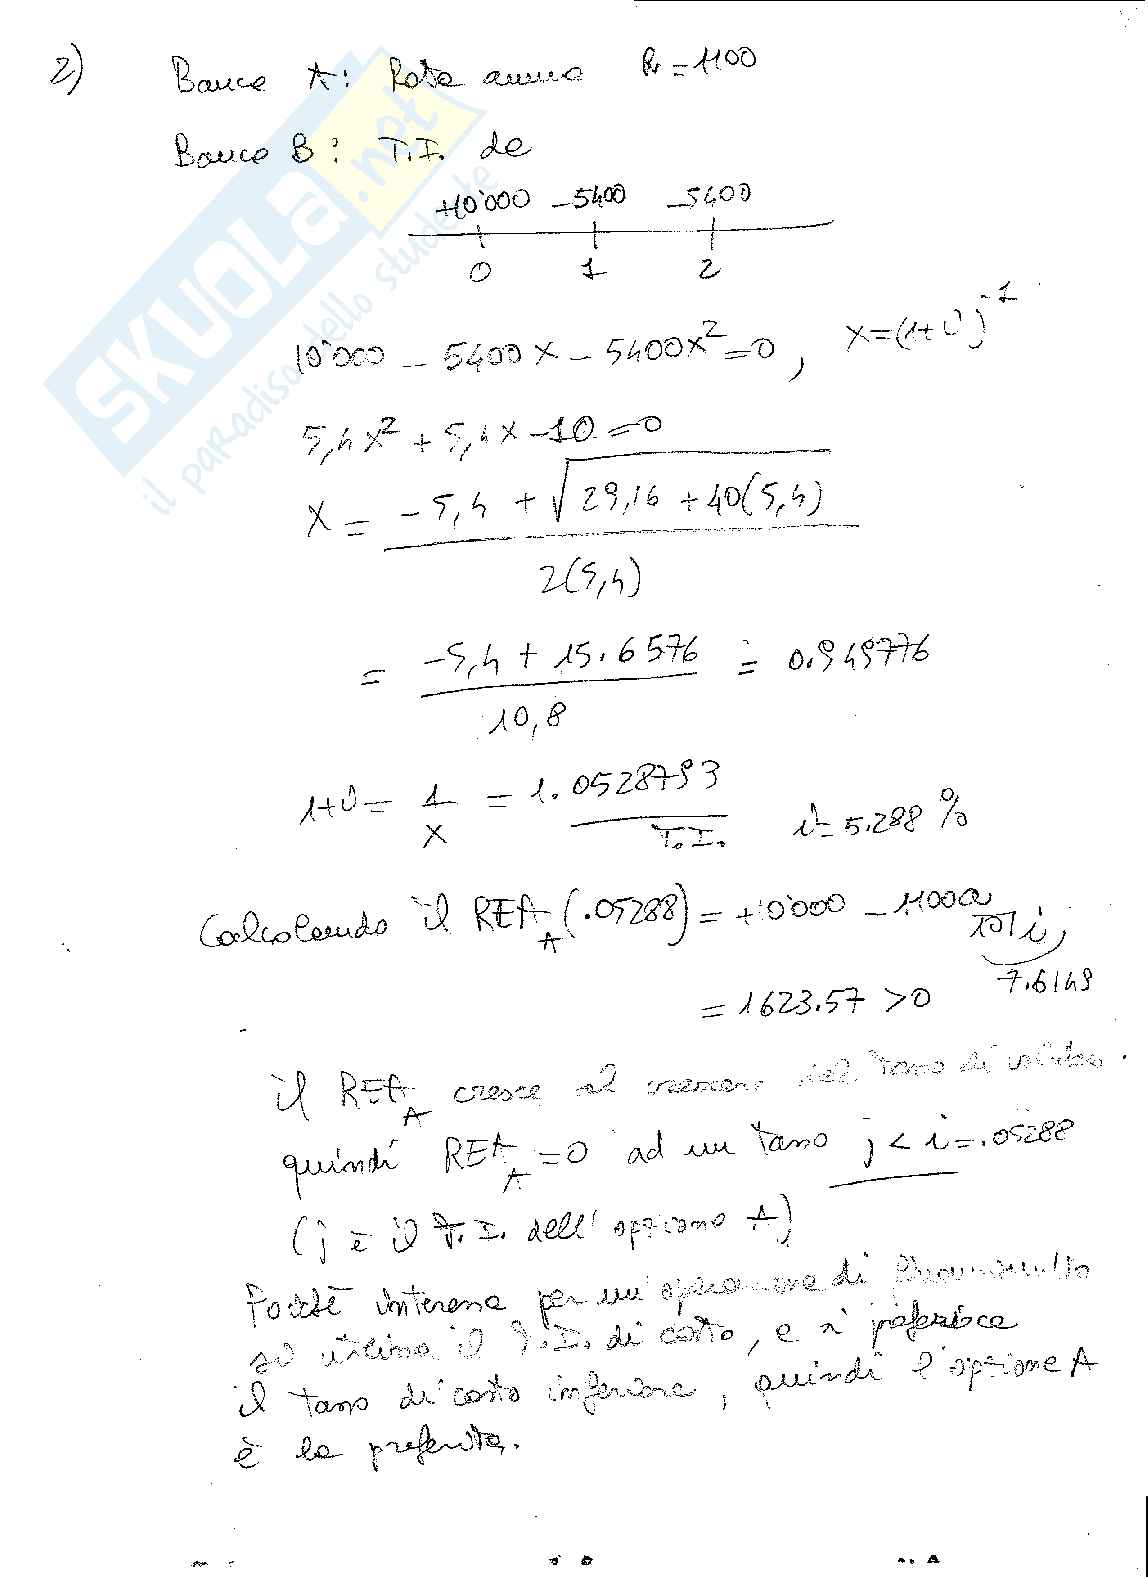 2)
Banca A: Rata annua R = 1100
Banca B: T.I. da
+10'000 -5400 -5400
0 1 2
10'000 - 5400x - 5400x² = 0, x = (1+i)⁻¹
5,4x² + 5,4x - 10 = 0
x = -5,4 + √29,16 + 40(5,4)
2(5,4)
= -5,4 + 15.6576 = 0.949776
10,8
1+i = 1/x = 1.0528793
T.I. i = 5.288 %
Calcolando il REA_A (.05288) = +10'000 - 1100 a 10 i,
7.6149
= 1623.57 > 0
il REA_A cresce al crescere del tasso di
quindi REA_A = 0 ad un tasso j < i = .05288
(j è il T.I. dell'opzione A)
Poiché interessa per un'operazione di finanziamento
si utilizza il T.I. di costo, e si preferisce
il tasso di costo inferiore, quindi l'opzione A
è la preferita.
SKUOLA.net
il paradiso dello studente